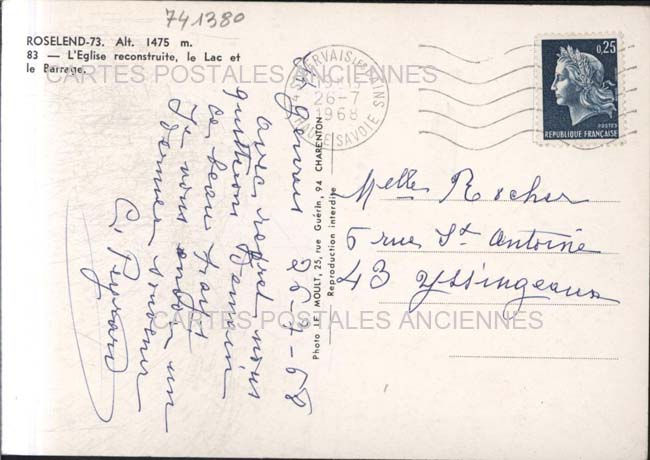 741380
ROSELEND-73. Alt. 1475 m.
83 — L'Eglise reconstruite, le Lac et
le Barrage.
CARTES POSTALES ANCIENNES
St Gervais 25-7-68
avec regret nous
quittons demain
ce beau pays
Je vous envoie un
dernier souvenir
G. Peyrard
Photo LE MOULT, 25, rue Guérin, 94 CHARENTON
Reproduction interdite
ST GERVAIS LES BAINS
26-7
1968
HAUTE SAVOIE
0,25
POSTES
REPUBLIQUE FRANÇAISE
Melle Rocher
5 rue St Antoine
43 Yssingeaux
CARTES POSTALES ANCIENNES